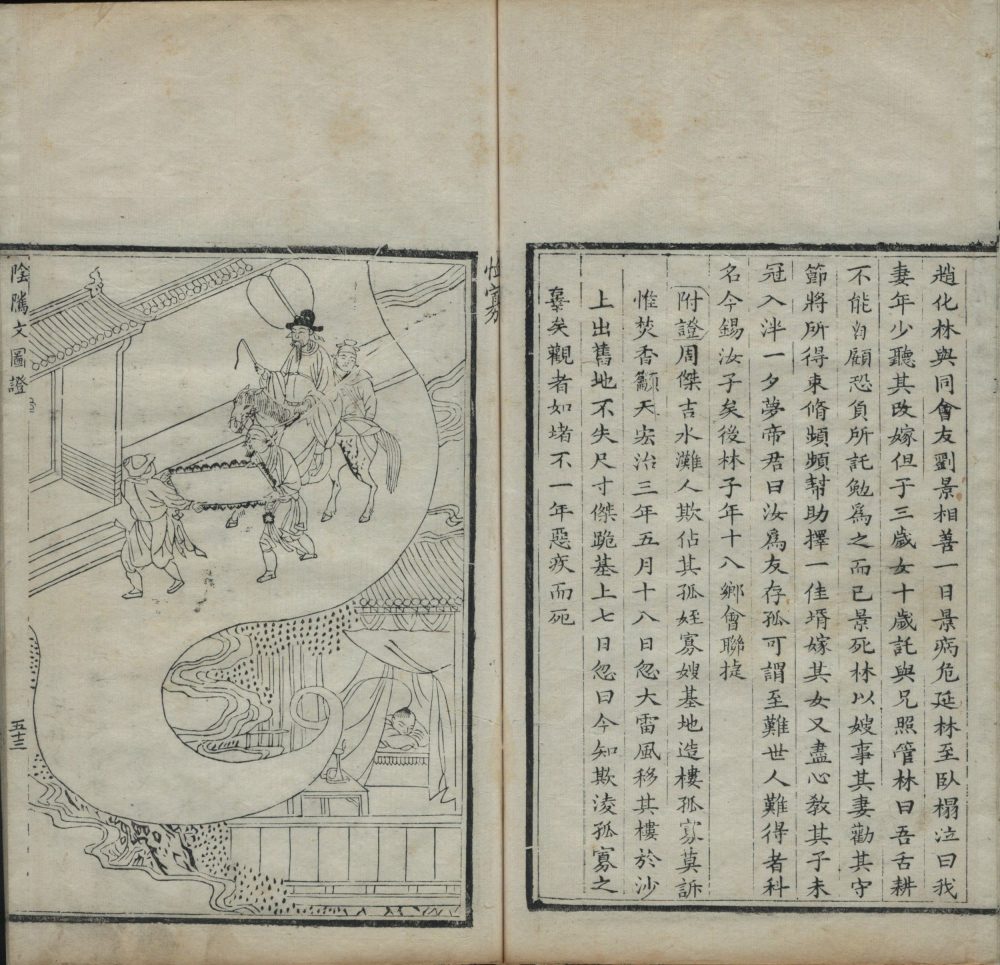 趙化林與同會友劉景相善一日景病危延林至臥榻泣曰我
妻年少聽其改嫁但于三歲女十歲託與兄照管林曰吾舌耕
不能自顧恐負所託勉為之而已景死林以嫂事其妻勸其守
節將所得束脩頻頻幫助擇一佳壻嫁其女又盡心敎其子未
冠入泮一夕夢帝君曰汝爲友存孤可謂至難世人難得者科
名今錫汝子矣後林子年十八鄉會聯捷
附證周傑吉水灘人欺佔其孤姪寡嫂基地造樓孤寡莫訴
惟焚香籲天宏治三年五月十八日忽大雷風移其樓於沙
上出舊地不失尺寸傑跪基上七日忽曰今知欺淩孤寡之
業矣觀者如堵不一年惡疾而死
恤寡
陰騭文圖證
五十三